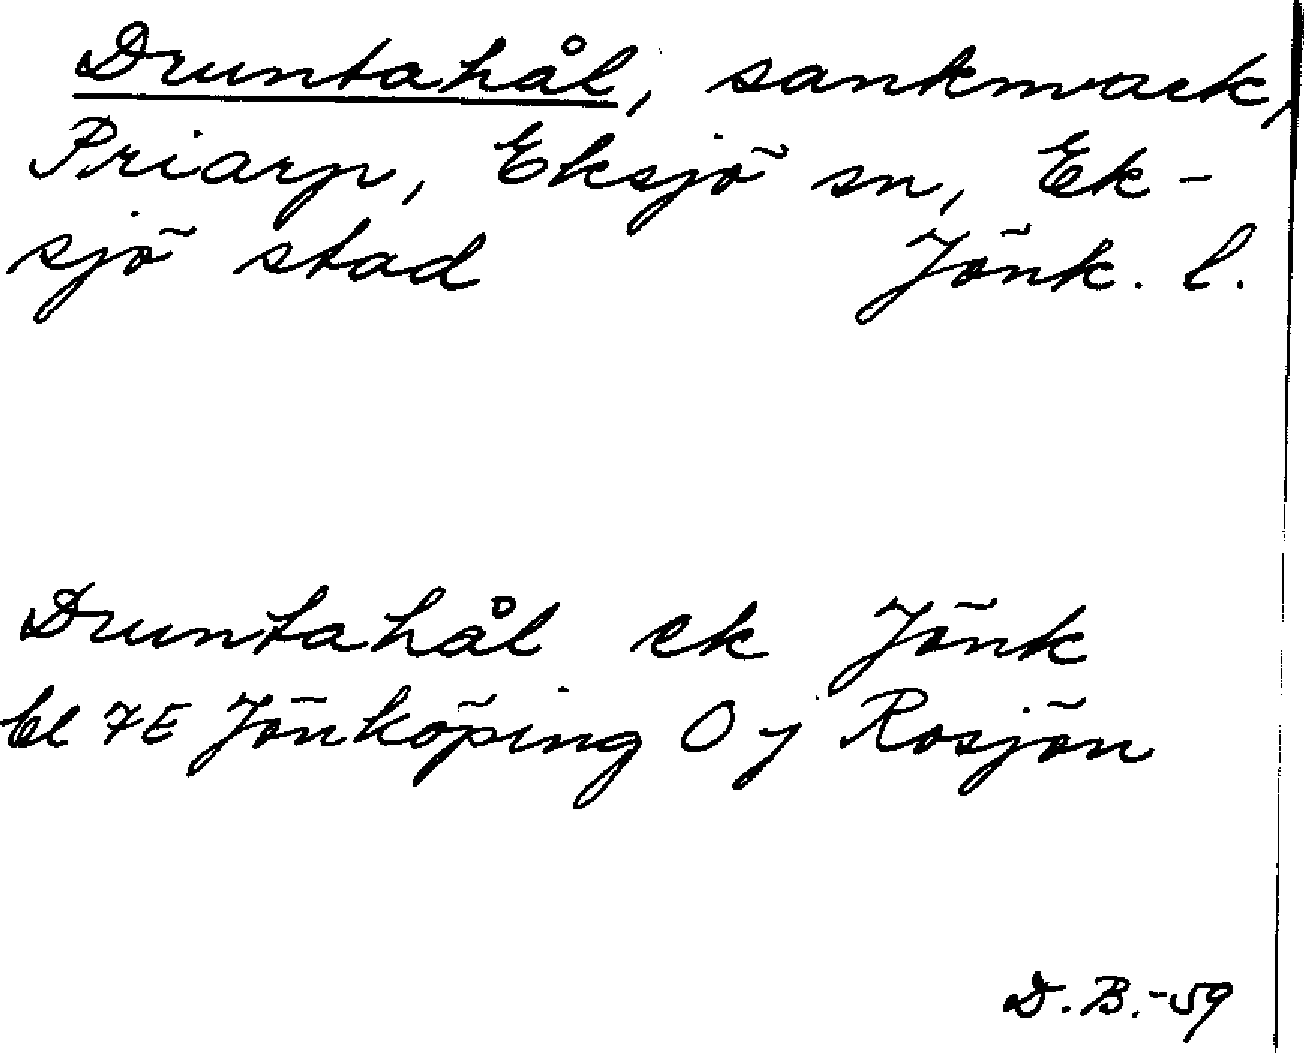 Druntahål, sankmark,
Priarp, Eksjö sn, Ek-
sjö stad Jönk. l.
Druntahål ek Jönk
bl 7E Jönköping Oj Rosjön
D.B.-59